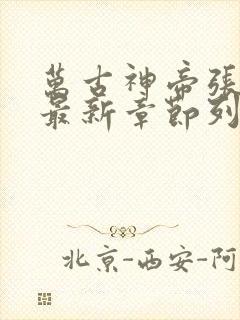 萬古神帝張
最新章節列
北京-西安-阿